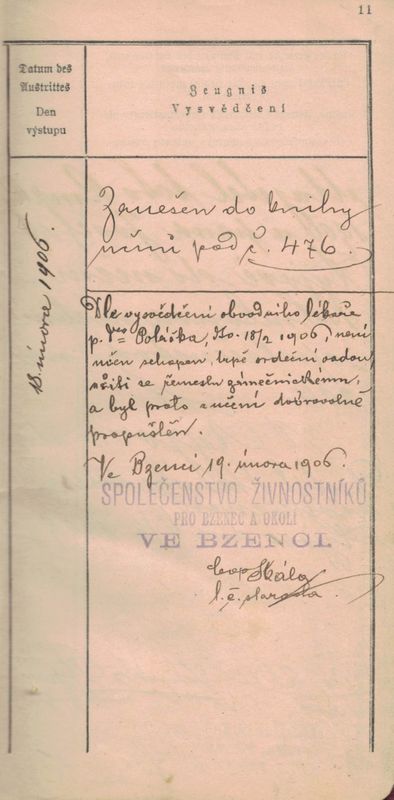 11
Datum des
Austrittes
Den
výstupu
Zeugnis
Vysvědčení
18. února 1906.
Zanešen do knihy
učňů pod č. 476.
Dle vysvědčení obvodního lékaře
p. Dra Poláška, dto. 18/2 1906, není
učen schopen, trpě srdeční vadou,
učiti se řemeslu zámečnickému,
a byl proto z učení dobrovolně
propuštěn.
Ve Bzenci 19. února 1906.
SPOLEČENSTVO ŽIVNOSTNÍKŮ
PRO BZENEC A OKOLÍ
VE BZENCI.
Skála
t. č. starosta